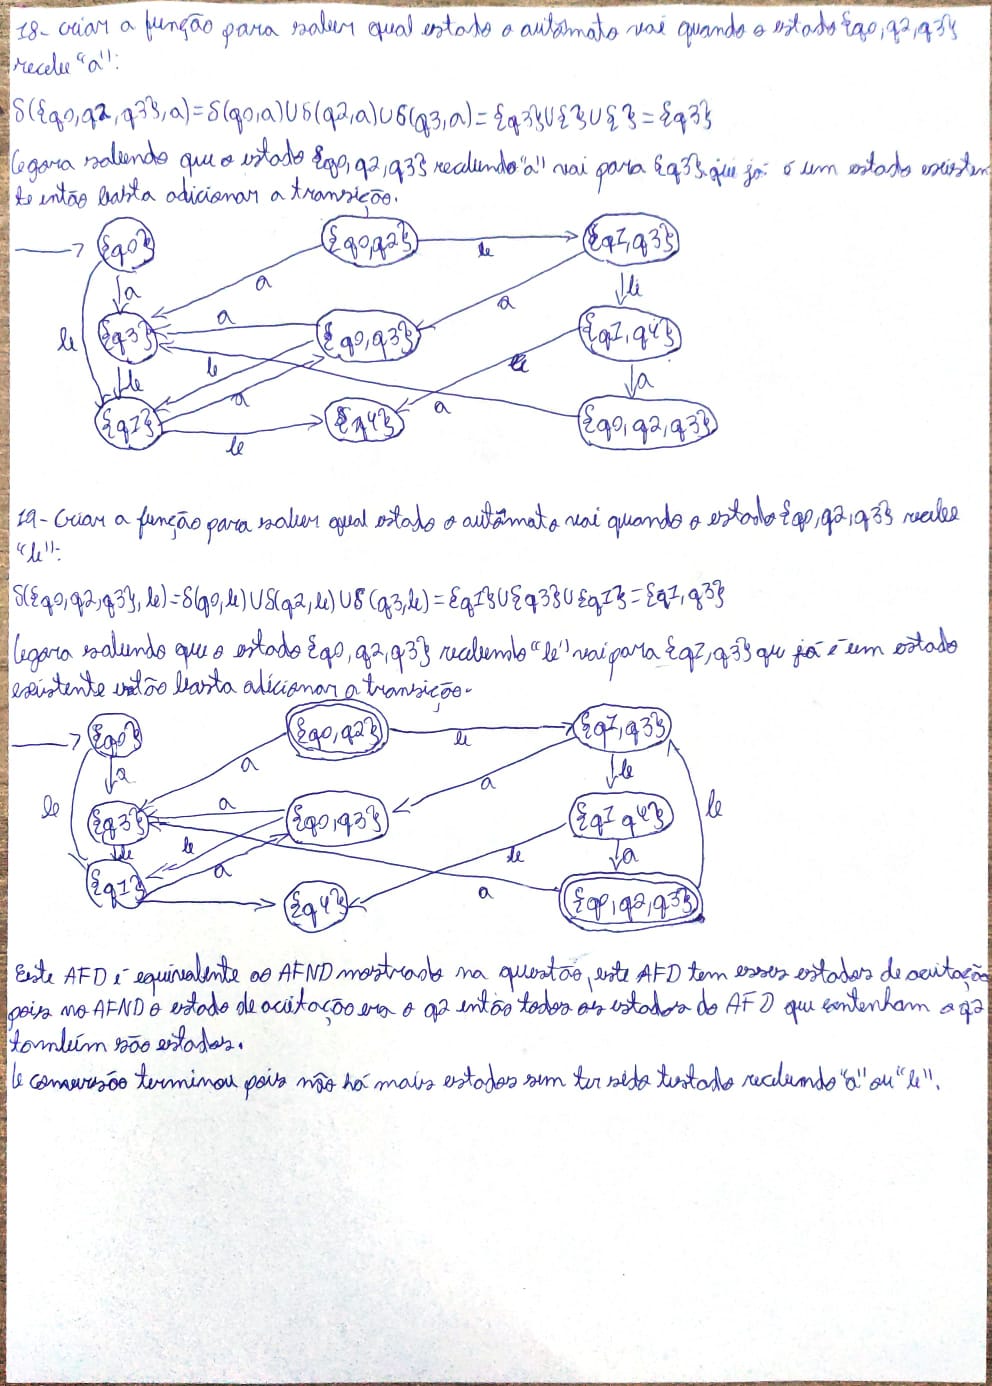 18- Criar a função para saber qual estado o autômato vai quando o estado {q0,q2,q3}
recebe "a":
δ({q0,q2,q3},a)=δ(q0,a)∪δ(q2,a)∪δ(q3,a)={q3}∪{}∪{}={q3}
Agora sabendo que o estado {q0,q2,q3} recebendo "a" vai para {q3} que já é um estado existen
te então basta adicionar a transição.
{q0} {q0,q2} b {q1,q3}
a a a b
b {q3} a {q0,q3} {q1,q4}
b b a b a
{q1} b {q4} a {q0,q2,q3}
19- Criar a função para saber qual estado o autômato vai quando o estado {q0,q2,q3} recebe
"b":
δ({q0,q2,q3},b)=δ(q0,b)∪δ(q2,b)∪δ(q3,b)={q1}∪{q3}∪{q1}={q1,q3}
Agora sabendo que o estado {q0,q2,q3} recebendo "b" vai para {q1,q3} que já é um estado
existente então basta adicionar a transição.
{q0} {q0,q2} b {q1,q3}
a a a b
b {q3} a {q0,q3} {q1 q4} b
b b a b a
{q1} {q4} a {q0,q2,q3}
Este AFD é equivalente ao AFND mostrado na questão, este AFD tem esses estados de aceitação
pois no AFND o estado de aceitação era o q2 então todos os estados do AFD que contenham o q2
também são estados.
A conversão terminou pois não há mais estados sem ter sido testado recebendo "a" ou "b".